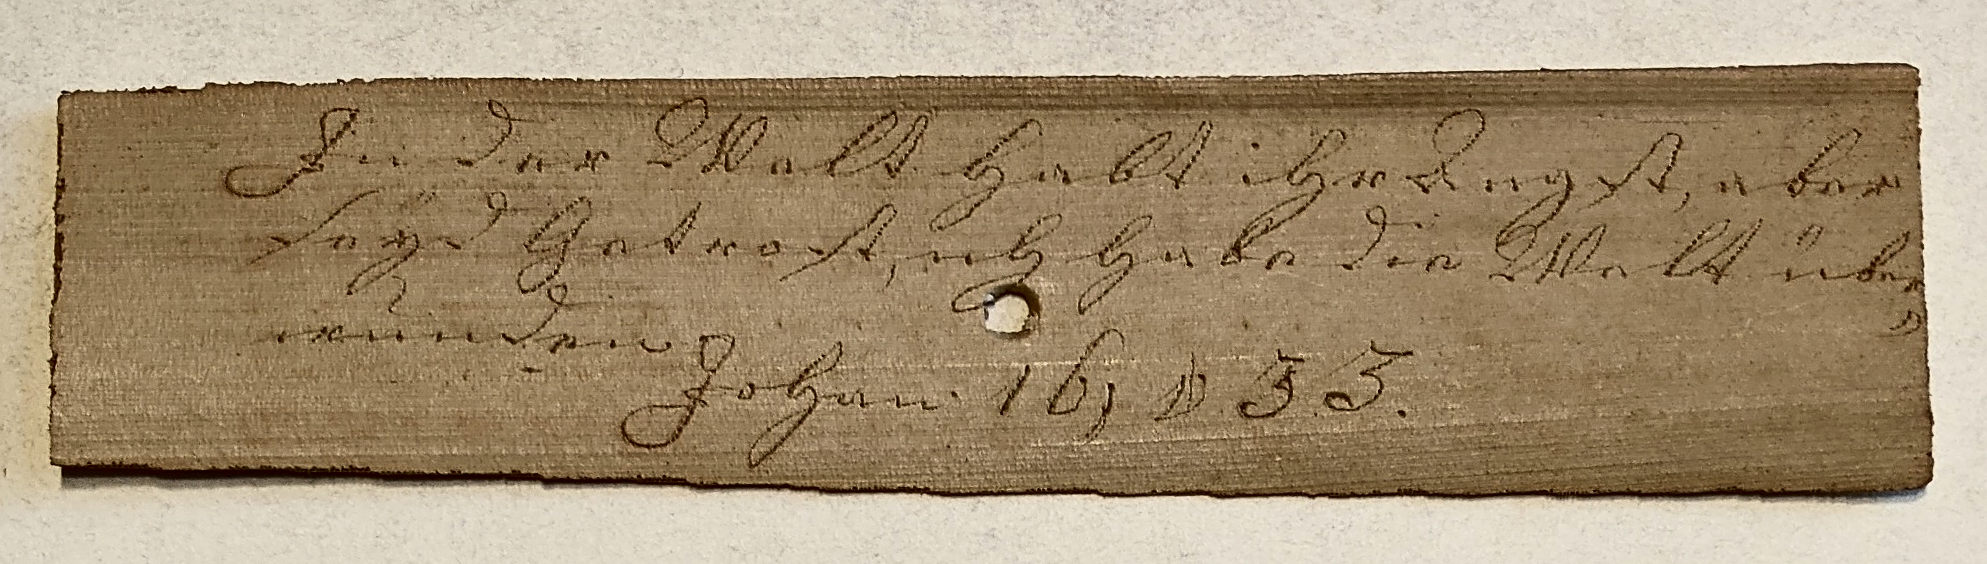 In der Welt habt ihr Angst, aber
seyd Getrost, ich habe die Welt über„
wunden
Johan 16, v 33.